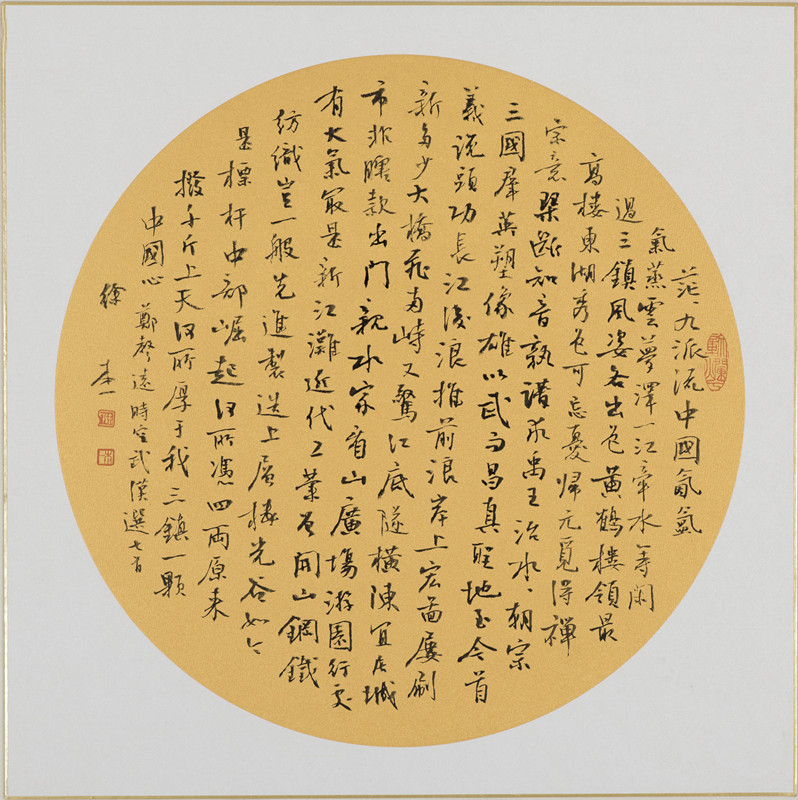 茫、九派流中國氤氳
氣蒸雲夢澤一江牽水等閑
過三鎮風姿各出色黃鶴樓領最
高樓東湖秀色可忘憂歸元覓得禪
宗意琴斷知音孰譜禹王治水、朝宗
三國羣英塑像雄以武而昌真聖地至今首
義說頭功長江後浪推前浪岸上宏圖屢刷
新多少大橋飛峙又驚江底隧橫陳宜居城
市非款出門親水家看山廣場游園行更
有大氣最是新江灘近代工業首開山鋼鐵
紡織豈一般先進製造上層樓光谷如今
是標杆中部崛起何所憑四兩原來
撥千斤上天何所厚于我三鎮一顆
中國心 鄭聲遠時空武漢選七首
徐本一